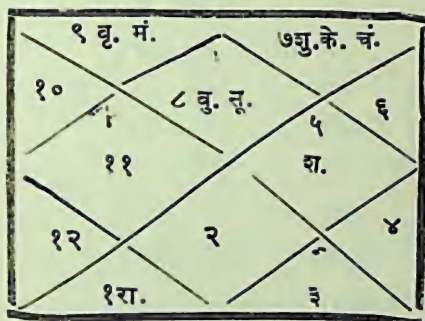 ९ वृ. मं. ७शु.के. चं.
१० ८ वु. सू. ६
५
११ श.
१२ २ ४
१रा. ३